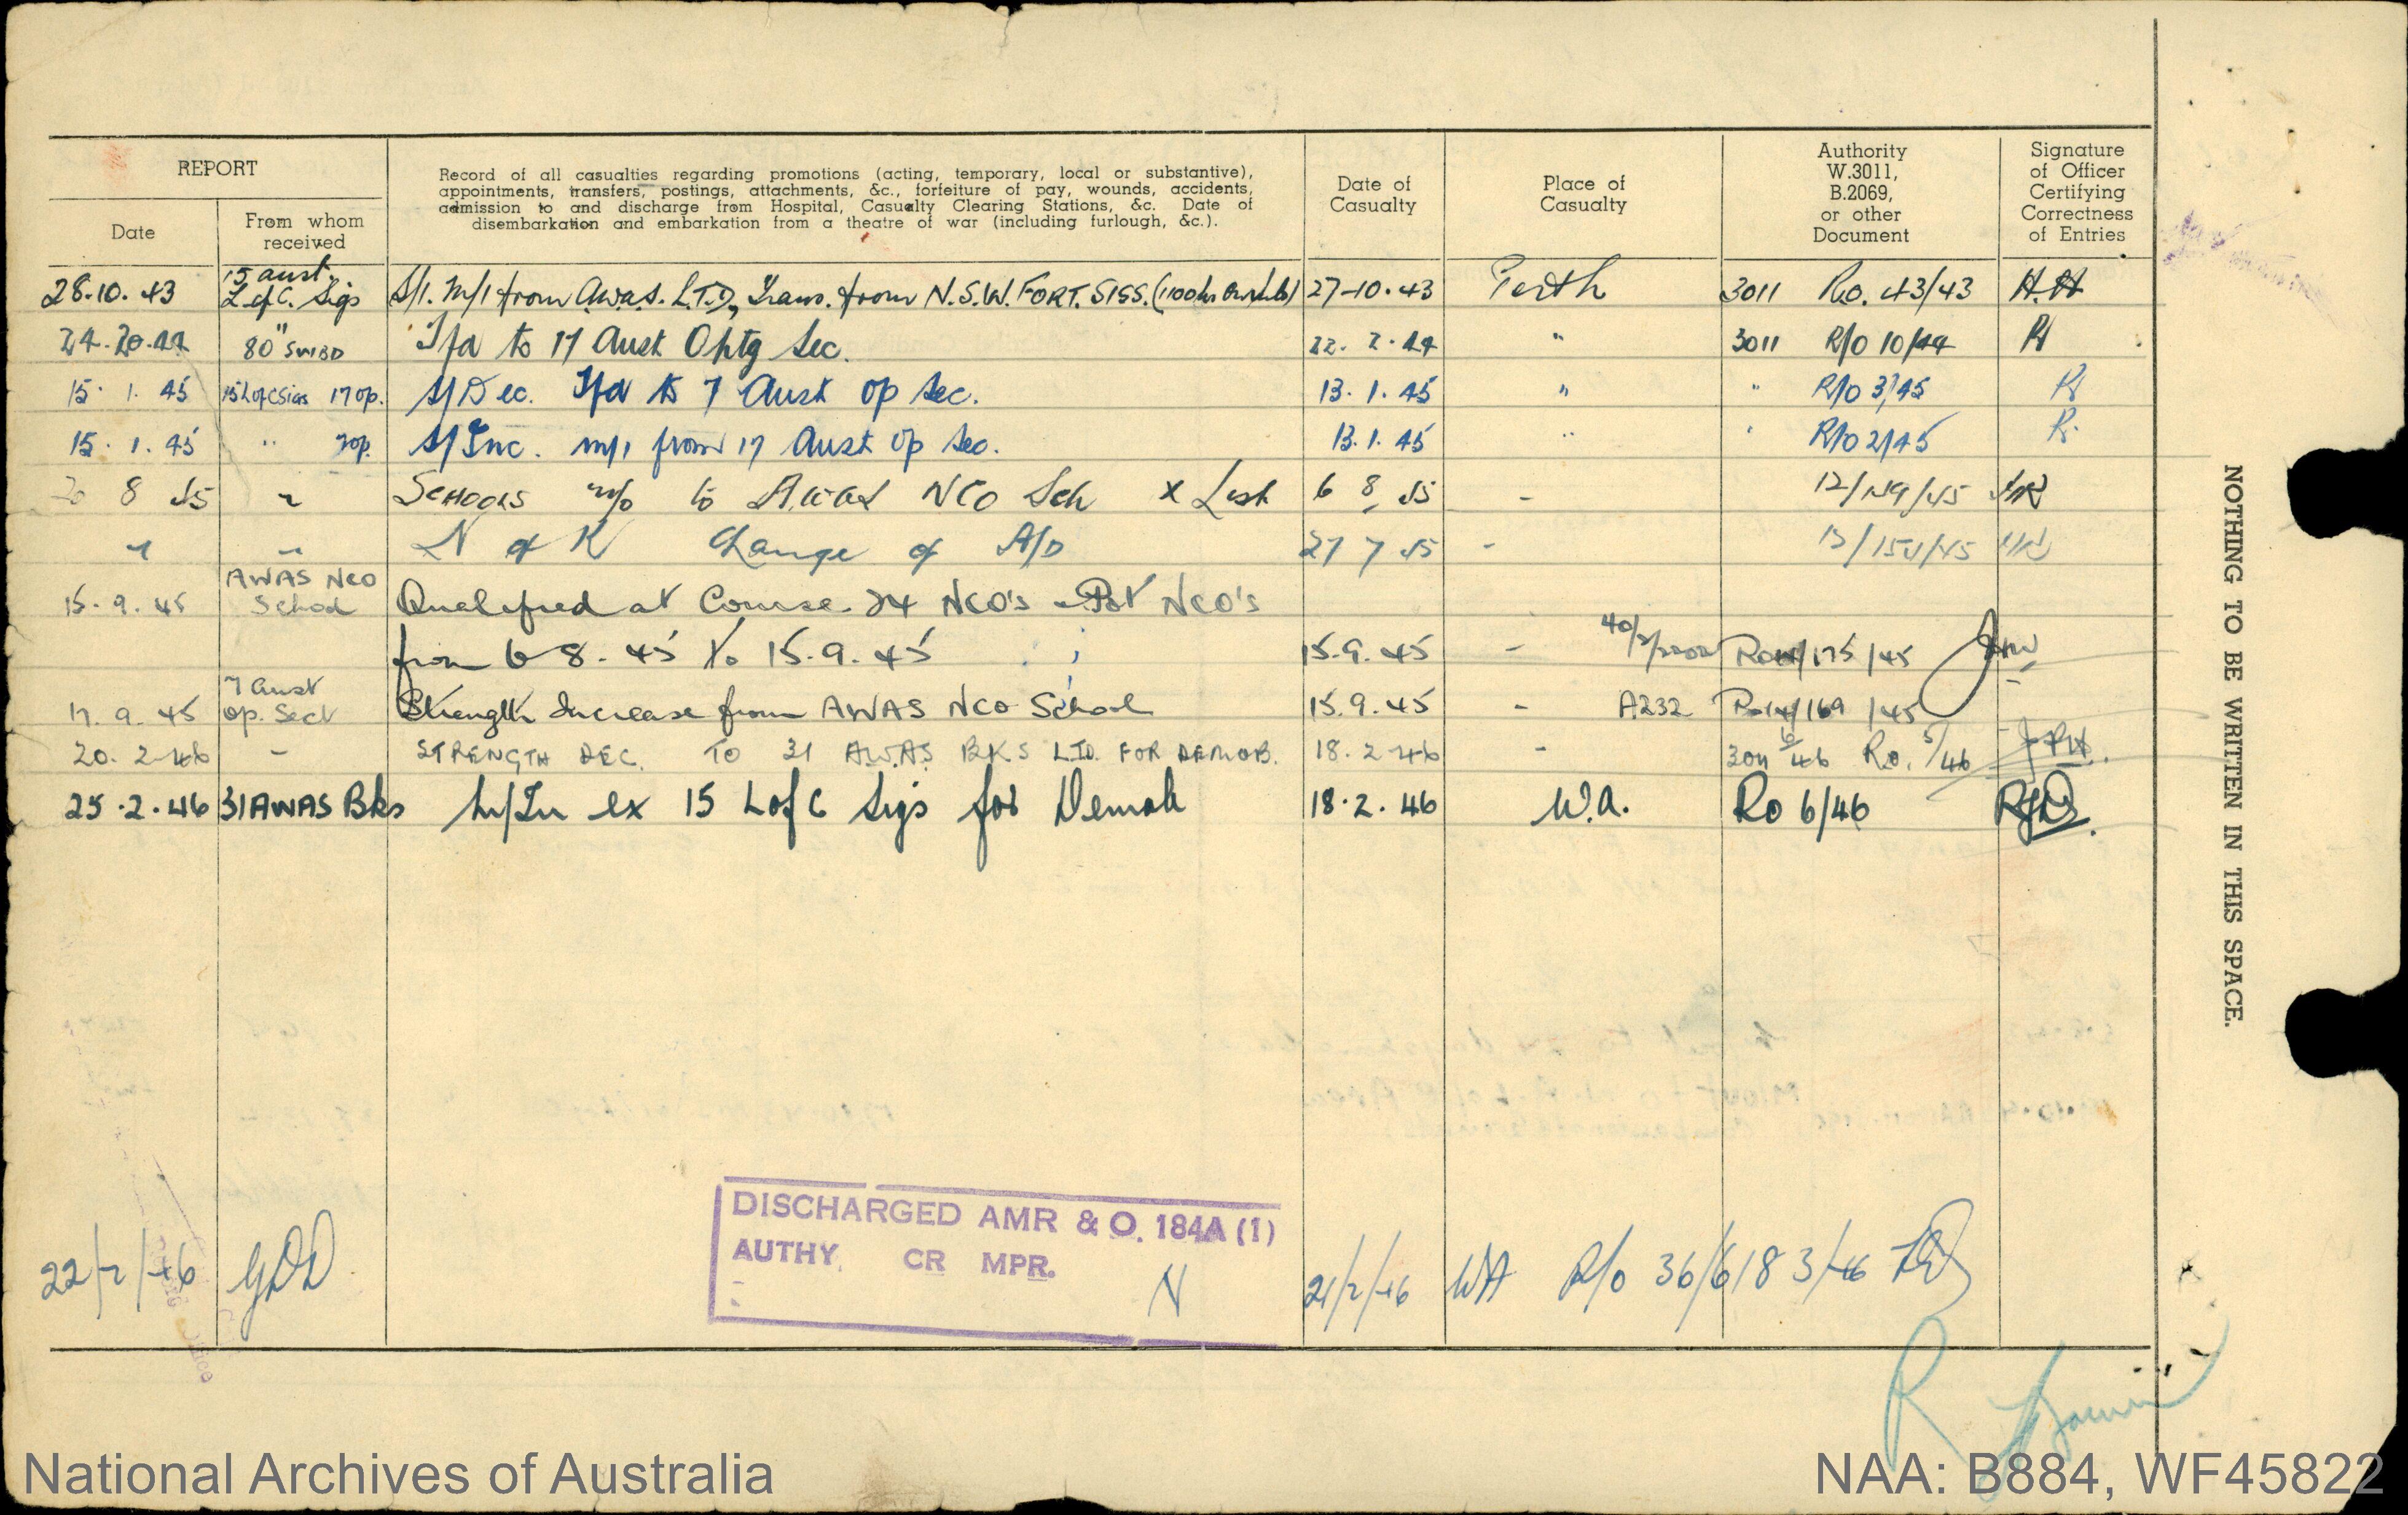 REPORT
Date
From whom
received
Record of all casualties regarding promotions (acting, temporary, local or substantive),
appointments, transfers, postings, attachments, &c., forfeiture of pay, wounds, accidents,
admission to and discharge from Hospital, Casualty Clearing Stations, &c. Date of
disembarkation and embarkation from a theatre of war (including furlough, &c.).
Date of
Casualty
Place of
Casualty
Authority
W.3011,
B.2069,
or other
Document
Signature
of Officer
Certifying
Correctness
of Entries
28.10.43 15 Aust. L of C. Sigs S/I. M/I from A.W.A.S. L.T.D., Trans. from N.S.W. FORT. SIGS. 27-10.43 Perth 3011 R.O. 43/43 H.H
80 " T/d to 17 Aust Optg Sec. 22. 2. 44 " 3011 R/O 10/44
15. 1. 45 15 L of C Sigs 17 op. S/Dec. T/d to 7 Aust Op Sec. 13. 1. 45 " " R/O 3/45
15. 1. 45 " 7 op. S/Inc. m/i from 17 Aust Op Sec. 13. 1. 45 " " R/O 2/45
20 8 45 " SCHOOLS m/o to AWAS NCO Sch X List 6 8 45 - 12/149/45
" " N of K Change of A/D 27 7 45 -
15. 9. 45 AWAS NCO School Qualified at Course 24 NCO's - Pot NCO's
from 6 8. 45 to 15. 9. 45 15.9.45 - 175/45
17. 9. 45 7 Aust Op. Sect Strength Increase from AWAS NCO School 15.9.45 - A232 169/45
20. 2 46 - STRENGTH DEC. TO 31 A.W.A.S BKS LTD. FOR DEMOB. 18. 2 46 - 3011 6/46 R.O. 5/46
25. 2. 46 31 AWAS Bks M/In ex 15 L of C Sigs for Demob 18. 2. 46 W.A. RO 6/46
DISCHARGED AMR & O. 184A (1)
AUTHY. CR MPR.
N
22/2/46 GDD 21/2/46 WA R/O 36/6183/46
NOTHING TO BE WRITTEN IN THIS SPACE.
National Archives of Australia
NAA: B884, WF45822